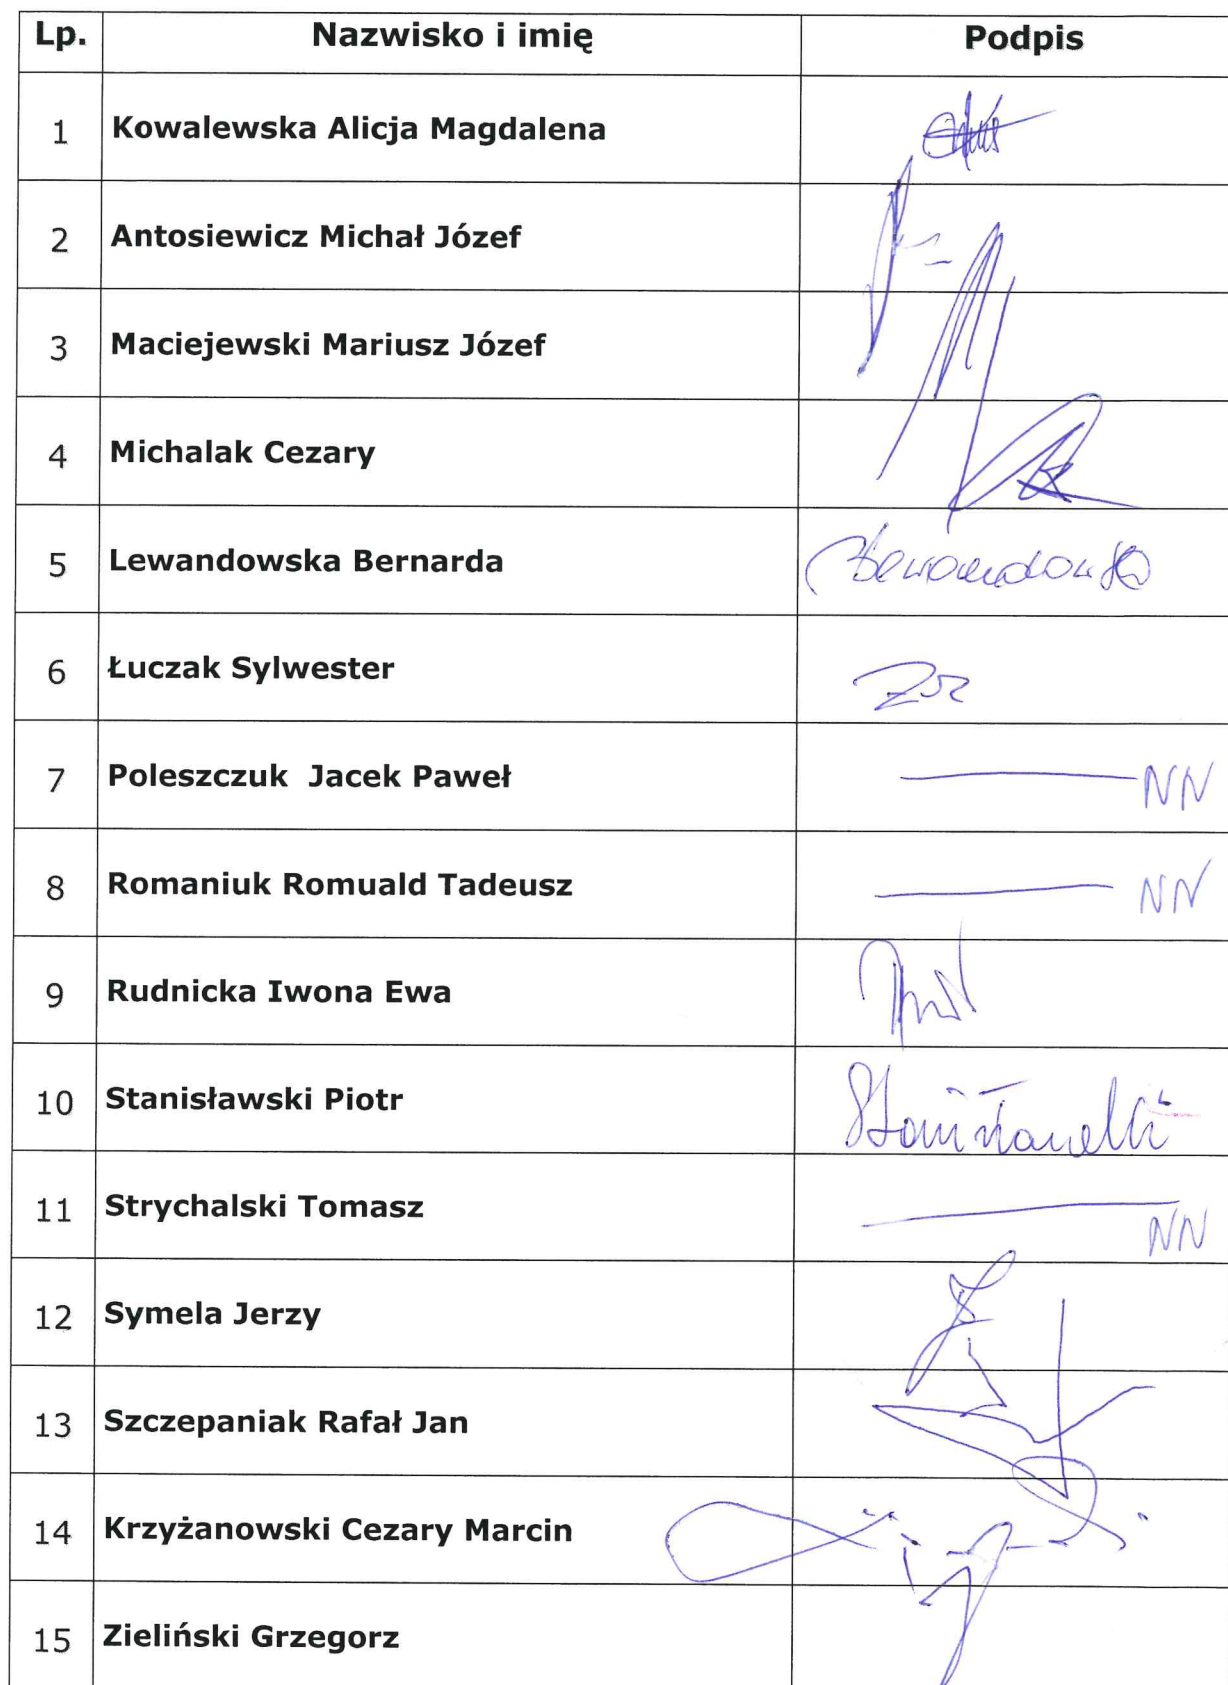 Lp. Nazwisko i imię Podpis
1 Kowalewska Alicja Magdalena
2 Antosiewicz Michał Józef
3 Maciejewski Mariusz Józef
4 Michalak Cezary
5 Lewandowska Bernarda
6 Łuczak Sylwester
7 Poleszczuk Jacek Paweł NN
8 Romaniuk Romuald Tadeusz NN
9 Rudnicka Iwona Ewa
10 Stanisławski Piotr
11 Strychalski Tomasz NN
12 Symela Jerzy
13 Szczepaniak Rafał Jan
14 Krzyżanowski Cezary Marcin
15 Zieliński Grzegorz